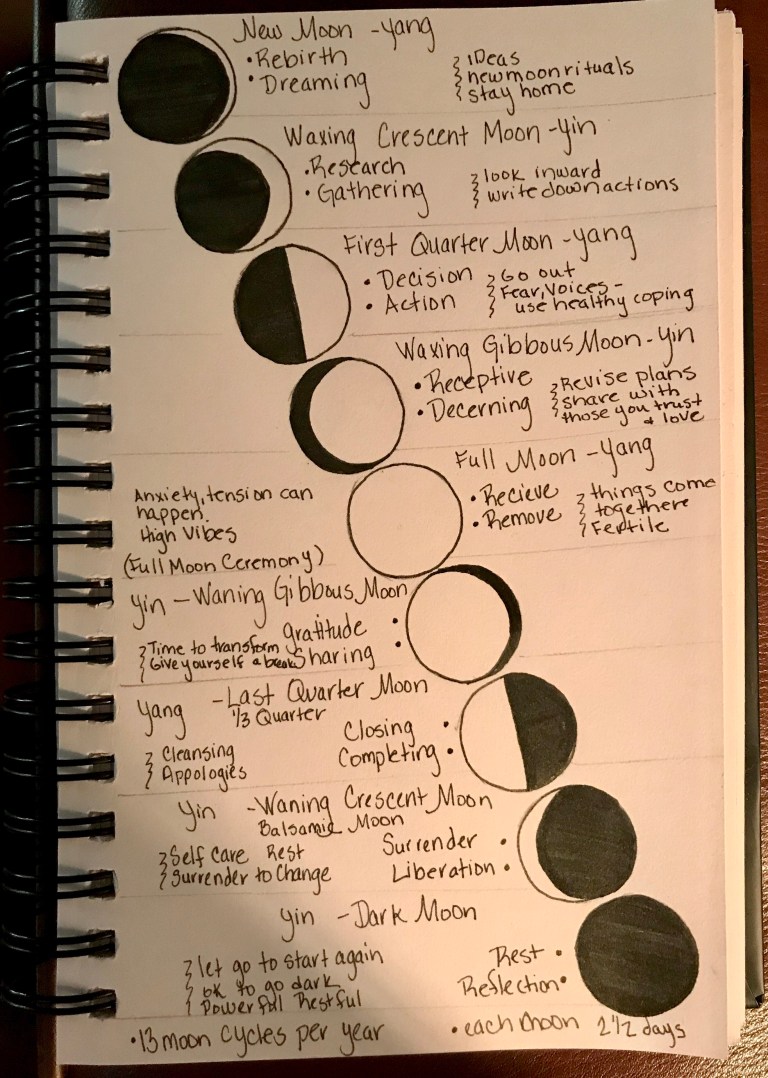 New Moon -yang
• Rebirth
• Dreaming
iDeas
new moon rituals
stay home
Waxing Crescent Moon -yin
• Research
• Gathering
look inward
write down actions
First Quarter Moon -yang
• Decision
• Action
Go out
Fear, Voices -
use healthy coping
Waxing Gibbous Moon - yin
• Receptive
• Decerning
Revise plans
share with
those you trust
+ love
Full Moon -Yang
• Recieve
• Remove
things come
togethere
Fertile
Anxiety, tension can
happen.
High Vibes
(Full Moon Ceremony)
yin - Waning Gibbous Moon
gratitude •
Sharing •
Time to transform
Give yourself a break
Yang - Last Quarter Moon
1/3 Quarter
Closing •
Completing •
Cleansing
Appologies
Yin - Waning Crescent Moon
Balsamic Moon
Surrender •
Liberation •
Self Care Rest
Surrender to Change
yin - Dark Moon
Rest •
Reflection •
let go to start again
ok to go dark
Powerful Restful
• 13 moon cycles per year
• each moon 2 1/2 days